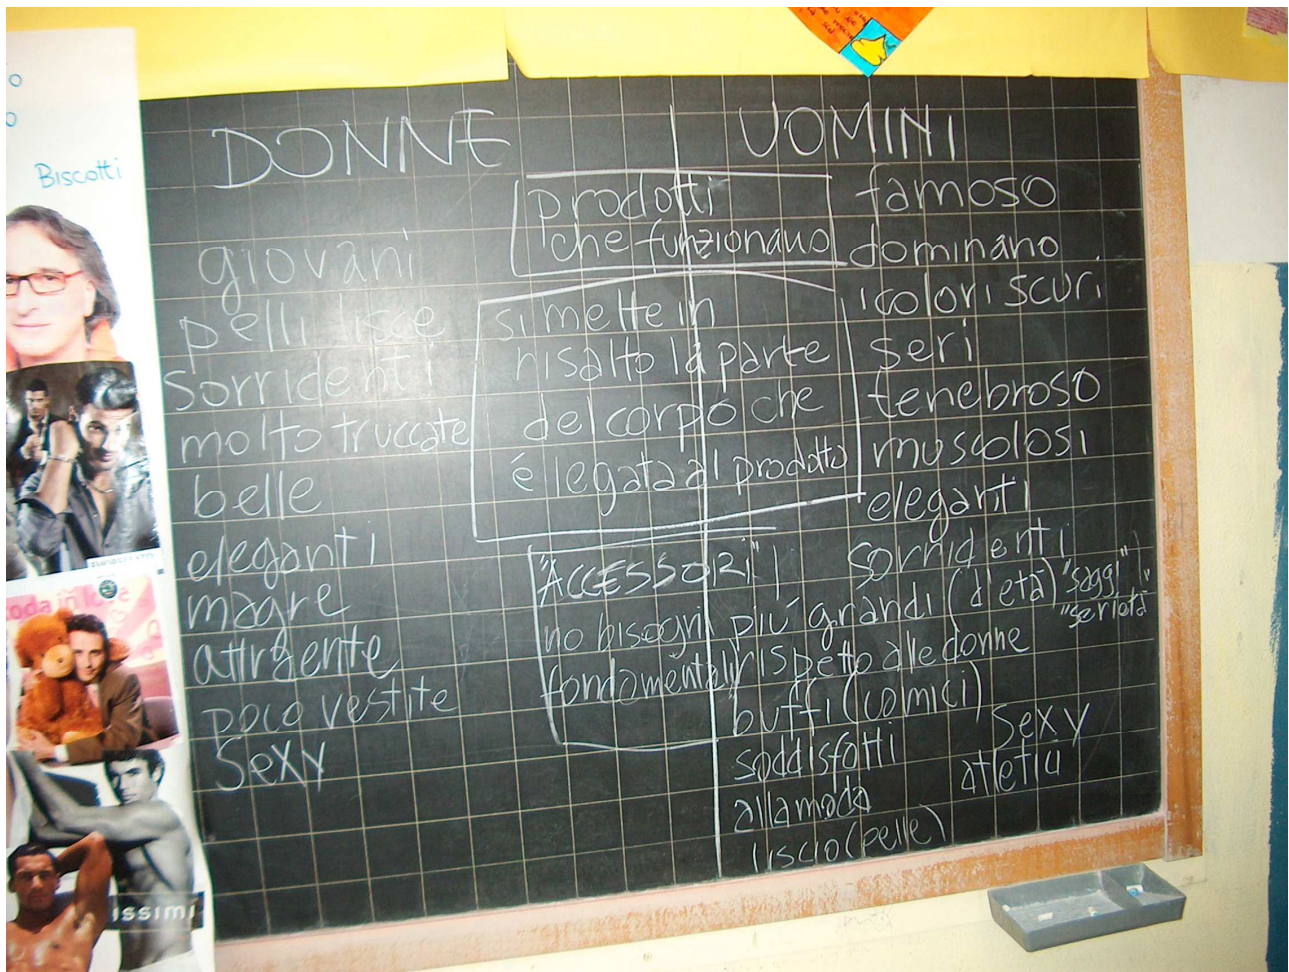 Biscotti
DONNE
giovani
pelli lisce
sorridenti
molto truccate
belle
eleganti
magre
attraente
poco vestite
sexy
prodotti
che funzionano
si mette in
risalto la parte
del corpo che
é legata al prodotto
"ACCESSORI"
no bisogni
fondamentali
UOMINI
famoso
dominano
i colori scuri
seri
tenebroso
muscolosi
eleganti
sorridenti
più grandi (d'età) "saggi"
"serietà"
rispetto alle donne
buffi (comici)
soddisfatti
alla moda
liscio (pelle)
sexy
atletici
issimi